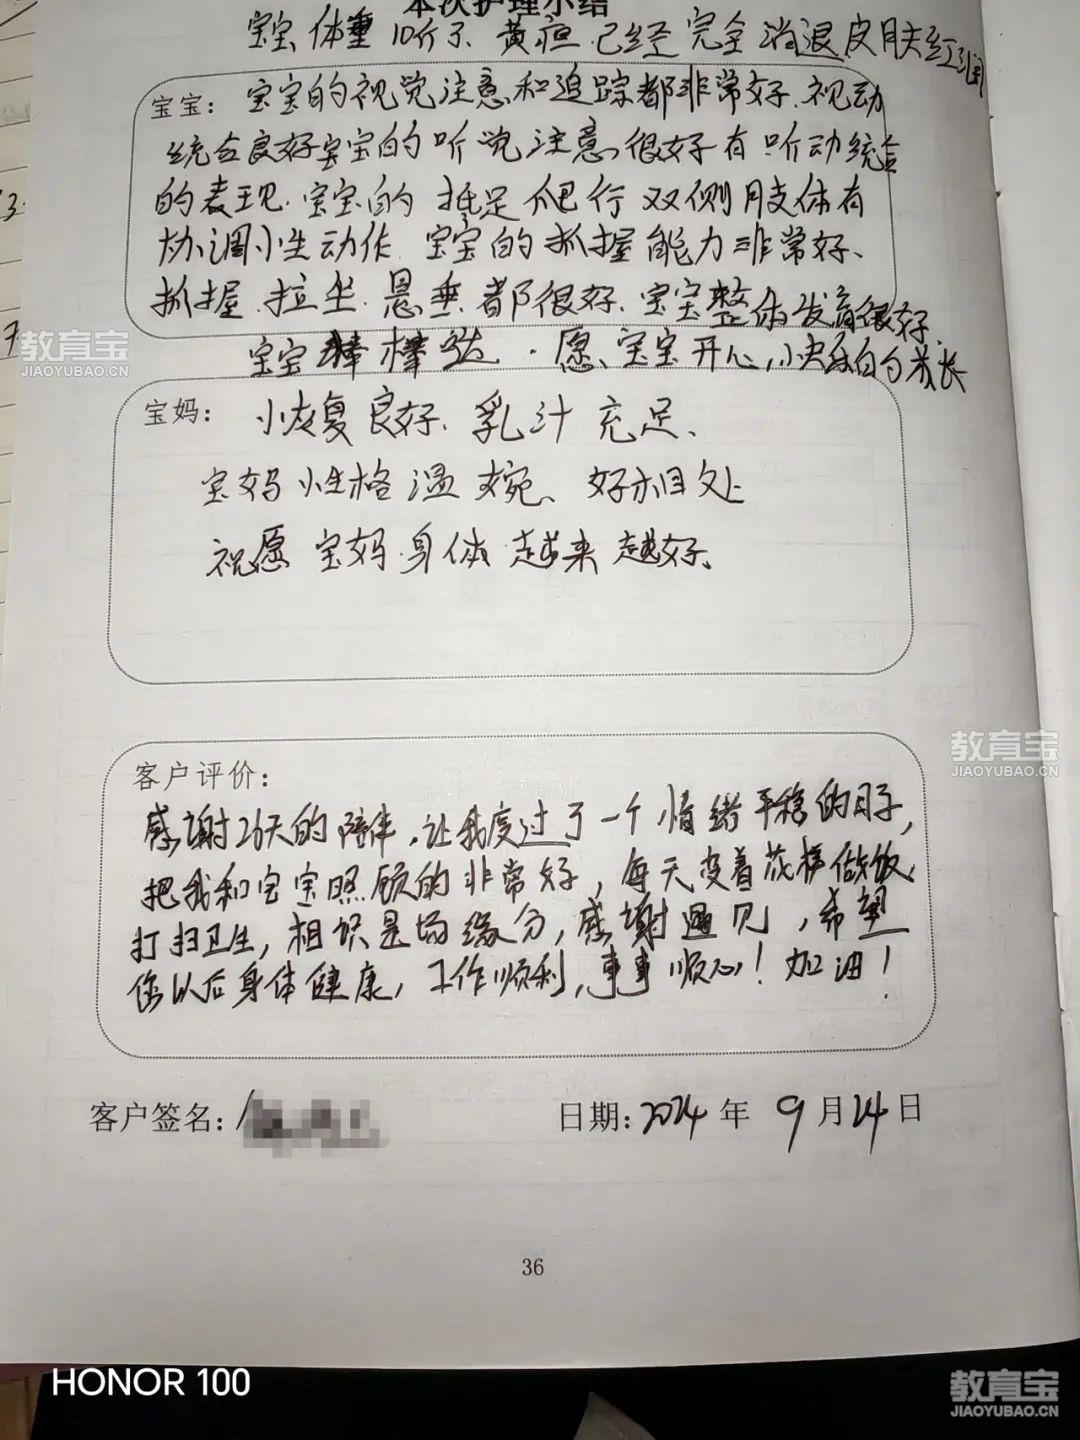 本次护理小结
宝宝体重10斤了、黄疸已经完全消退皮肤红润
宝宝: 宝宝的视觉注意和追踪都非常好.视动
统合良好宝宝的听觉注意很好有听动统合
的表现.宝宝的抵足爬行双侧肢体有
协调性动作.宝宝的抓握能力非常好、
抓握.拉坐.悬垂.都很好.宝宝整体发育很好.
宝宝棒棒哒.愿宝宝开心,快乐的成长
宝妈: 恢复良好.乳汁充足、
宝妈性格温婉、好相处
祝愿宝妈身体越来越好、
客户评价:
感谢26天的陪伴,让我度过了一个情绪平稳的日子,
把我和宝宝照顾的非常好,每天变着花样做饭,
打扫卫生,相识是场缘分,感谢遇见,希望
您以后身体健康,工作顺利,事事顺心!加油!
客户签名:
日期:2024年9月24日
36
教育宝
JIAOYUBAO.CN
教育宝
JIAOYUBAO.CN
HONOR 100
教育宝
JIAOYUBAO.CN